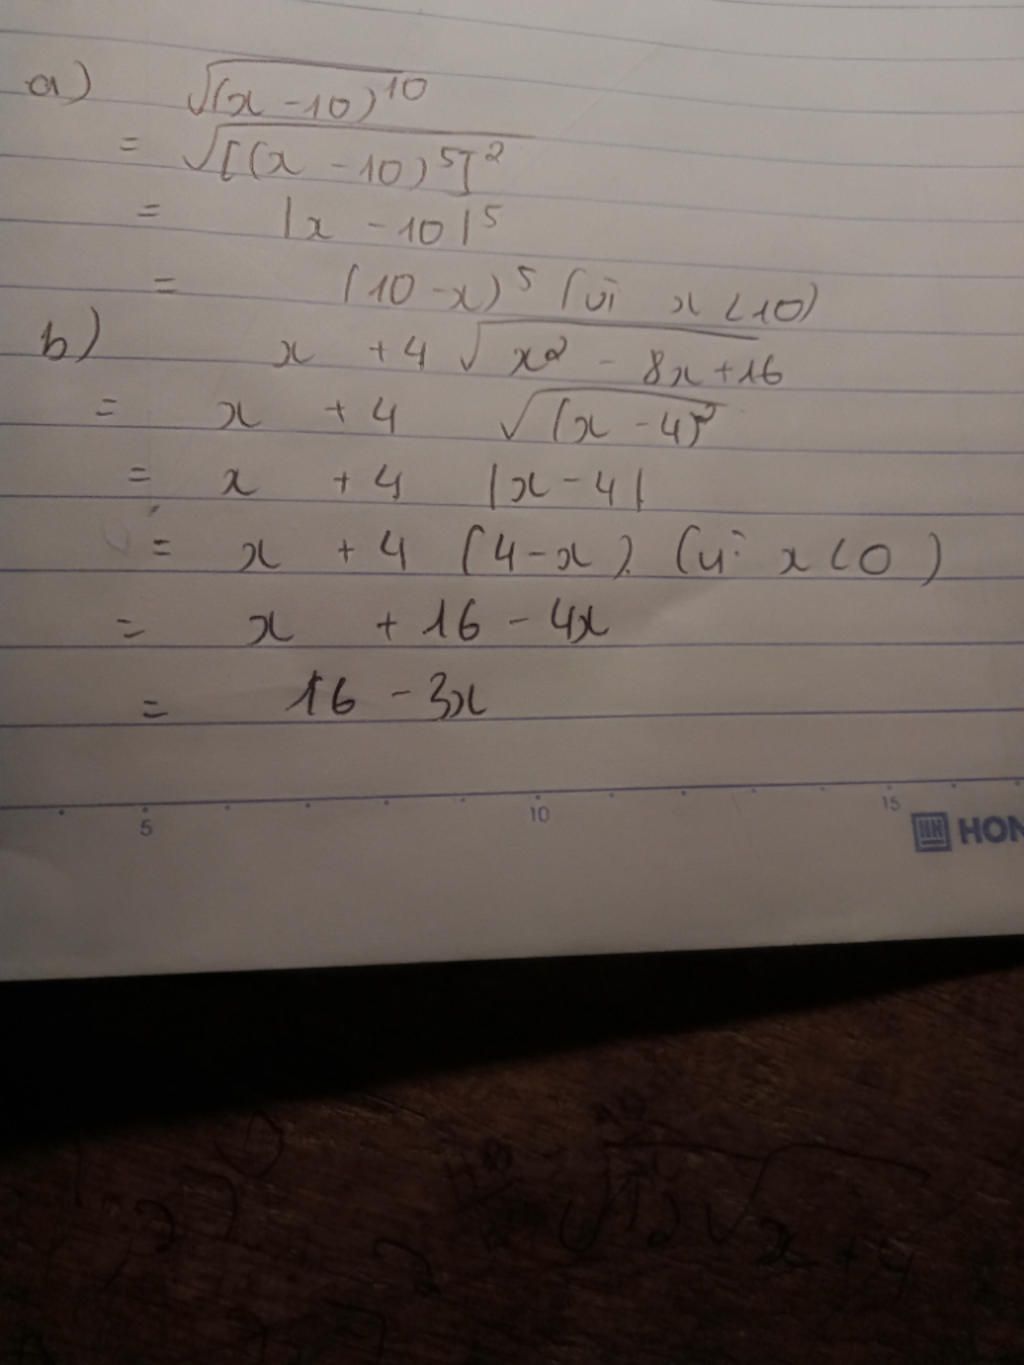 a) √(x-10)¹⁰
= √[(x-10)⁵]²
= |x-10|⁵
= (10-x)⁵ (vì x<10)
b) x +4 √x² - 8x+16
= x +4 √(x-4)²
= x +4 |x-4|
= x +4 (4-x). (vì x<0)
= x +16 - 4x
= 16 - 3x
5 10 15
HH HON